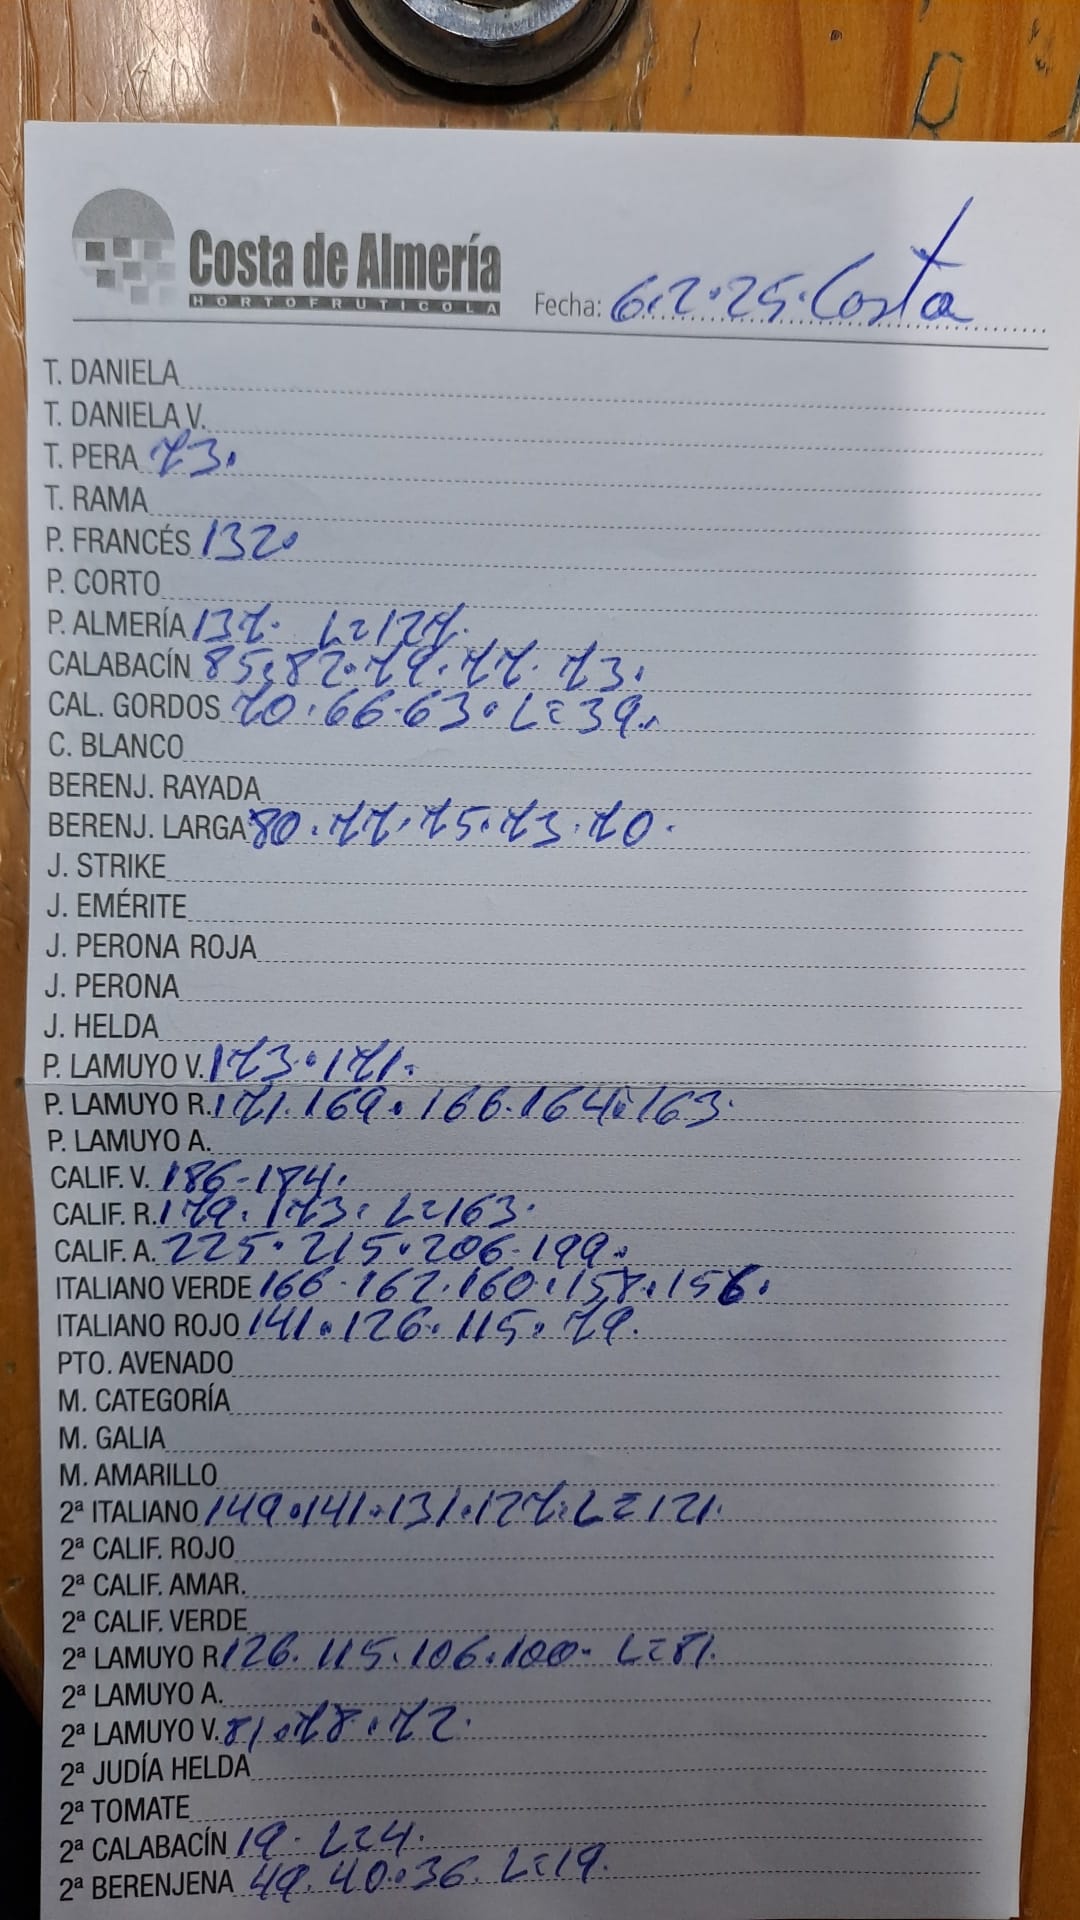 Costa de Almería
HORTOFRUTICOLA
Fecha: 6.2.25. Costa
T. DANIELA
T. DANIELA V.
T. PERA 73.
T. RAMA
P. FRANCÉS 132.
P. CORTO
P. ALMERÍA 137. L=127.
CALABACÍN 85.82.79.77.73.
CAL. GORDOS 70.66.63.L=39.
C. BLANCO
BERENJ. RAYADA
BERENJ. LARGA 80.77.75.73.70.
J. STRIKE
J. EMÉRITE
J. PERONA ROJA
J. PERONA
J. HELDA
P. LAMUYO V. 173.171.
P. LAMUYO R. 171.169.166.164.163.
P. LAMUYO A.
CALIF. V. 186-184.
CALIF. R. 179.173.L=163.
CALIF. A. 225.215.206.199.
ITALIANO VERDE 166.162.160.158.156.
ITALIANO ROJO 141.126.115.79.
PTO. AVENADO
M. CATEGORÍA
M. GALIA
M. AMARILLO
2ª ITALIANO 149.141.131.127.L=121.
2ª CALIF. ROJO
2ª CALIF. AMAR.
2ª CALIF. VERDE
2ª LAMUYO R 126.115.106.100. L=81.
2ª LAMUYO A.
2ª LAMUYO V. 81.78.72.
2ª JUDÍA HELDA
2ª TOMATE
2ª CALABACÍN 19. L=4.
2ª BERENJENA 49.40.36. L=19.